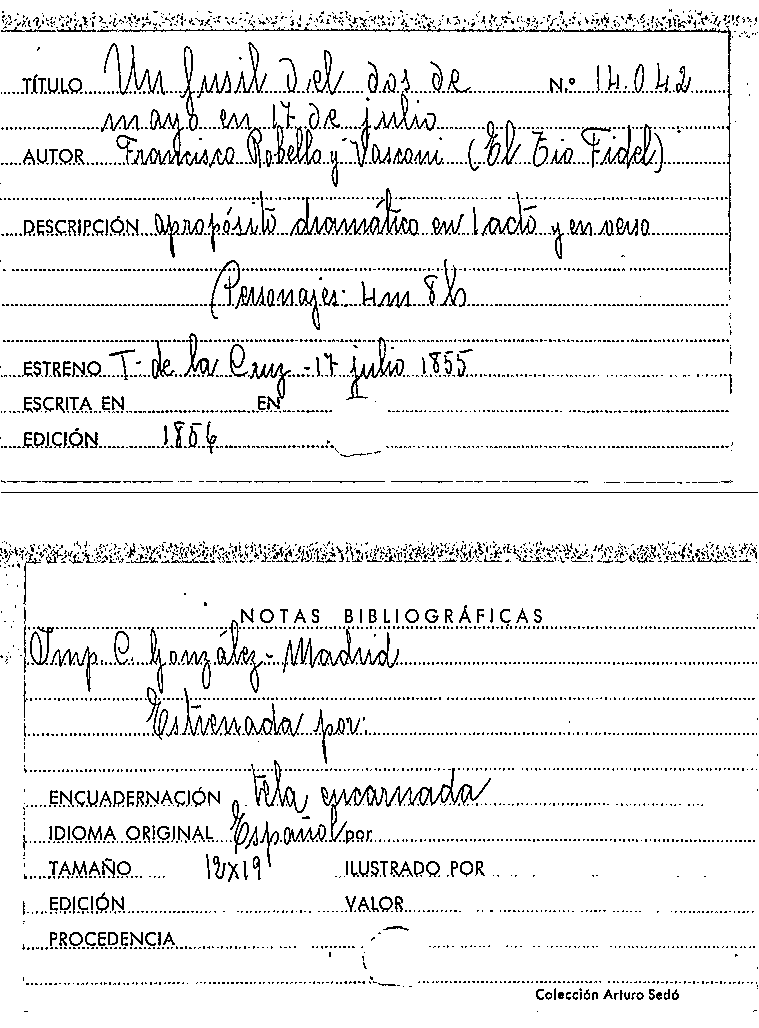 TÍTULO Un fusil del dos de Nº 14.042
mayo en 17 de julio
AUTOR Francisco Robello y Vasconi (El Tio Fidel)
DESCRIPCIÓN apropósito dramático en 1 acto y en verso
(Personajes: 4m 8h
ESTRENO T. de la Cruz - 17 julio 1855
ESCRITA EN EN
EDICIÓN 1856
NOTAS BIBLIOGRÁFICAS
Imp. C. González - Madrid
Estrenada por:
ENCUADERNACIÓN tela encarnada
IDIOMA ORIGINAL Español por
TAMAÑO 12x19 ILUSTRADO POR
EDICIÓN VALOR
PROCEDENCIA
Colección Arturo Sedó